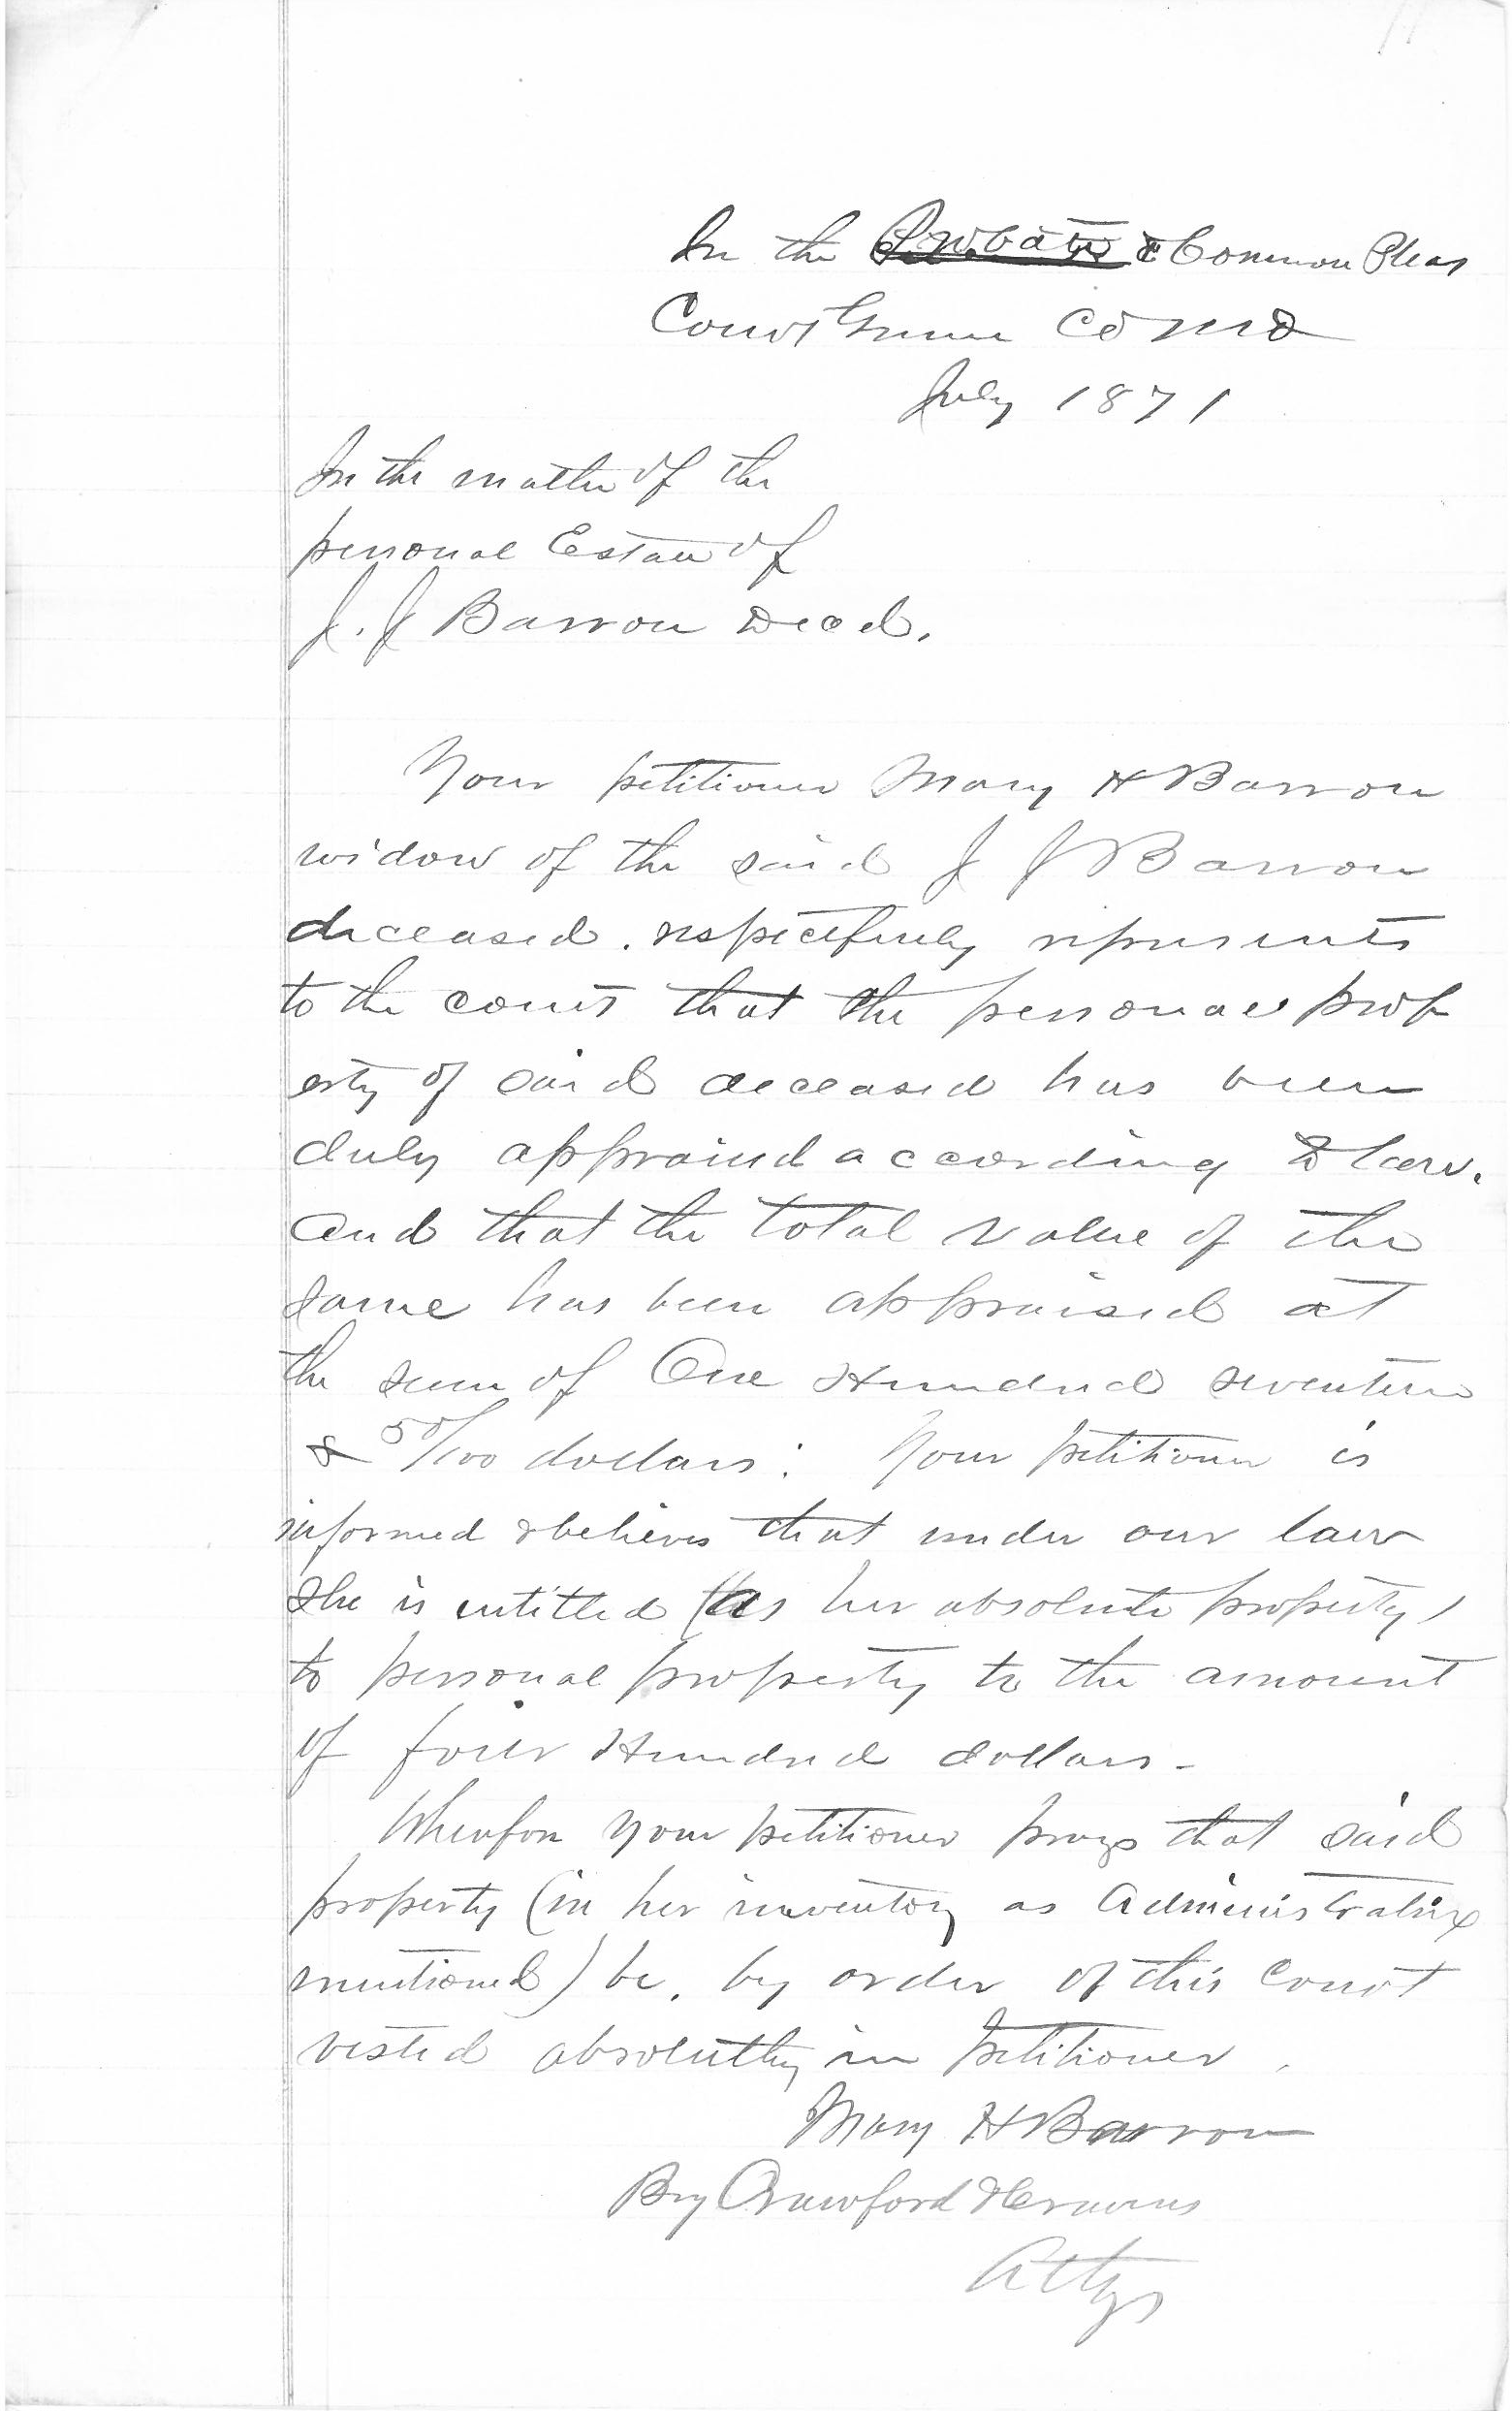 In the Probate & Common Pleas
Court Greene Co Mo
July 1871
In the matter of the
personal Estate of
J. J Barron Decd.
Your petitioner Mary H Barron
widow of the said J J Barron
deceased. respectfully represents
to the court that the personal prop
erty of said deceased has been
duly appraised according to law.
and that the total value of the
same has been appraised at
the sum of One Hundred seventeen
& 50/100 dollars: Your petitioner is
informed & believes that under our law
she is entitled (as her absolute property)
to personal property to the amount
of four Hundred dollars -
Wherefore your petitioner prays that said
property (in her inventory as Administratrix
mentioned) be, by order of this Court
vested absolutely in petitioner.
Mary H Barron
By Crawford &
Attys